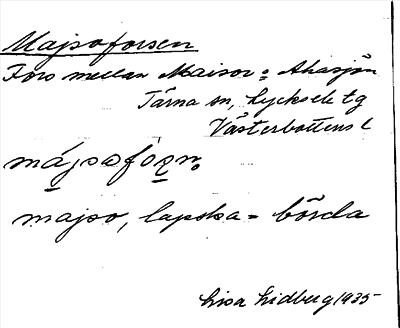 Majsoforsen
Fors mellan Maisor o Ahasjön
Tärna sn, Lycksele tg
Västerbottens l
majso, lapska = börda
Lisa Lidberg 1935